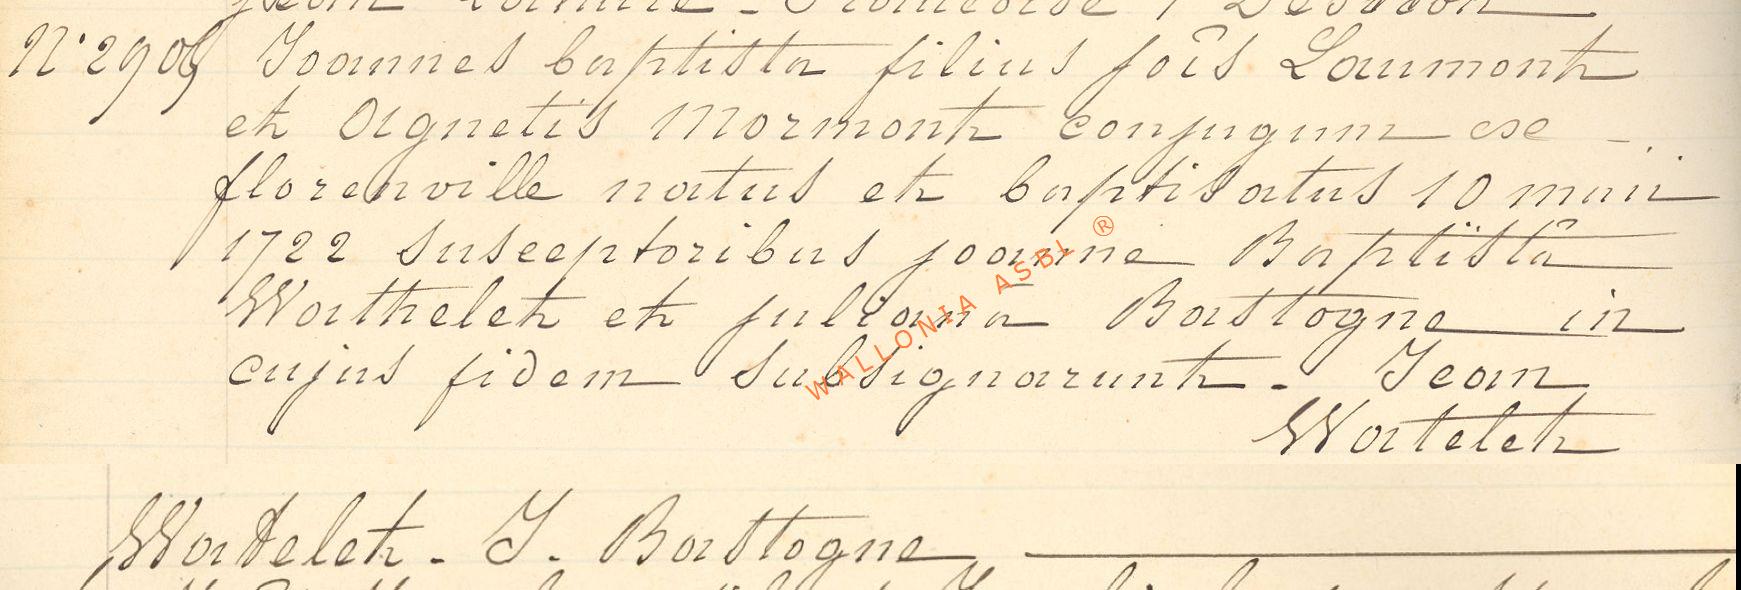 N° 2906 Joannes baptista filius joîs Laumont
et Agnetis Mormont conjugum ex
florenville natus et baptisatus 10 maii
1722 susceptoribus joanne Baptistâ
Wathelet et julianâ Bastogne in
cujus fidem subsignarunt - Jean
Watelet
Wattelet - J. Bastogne
WALLONIA ASBL ®